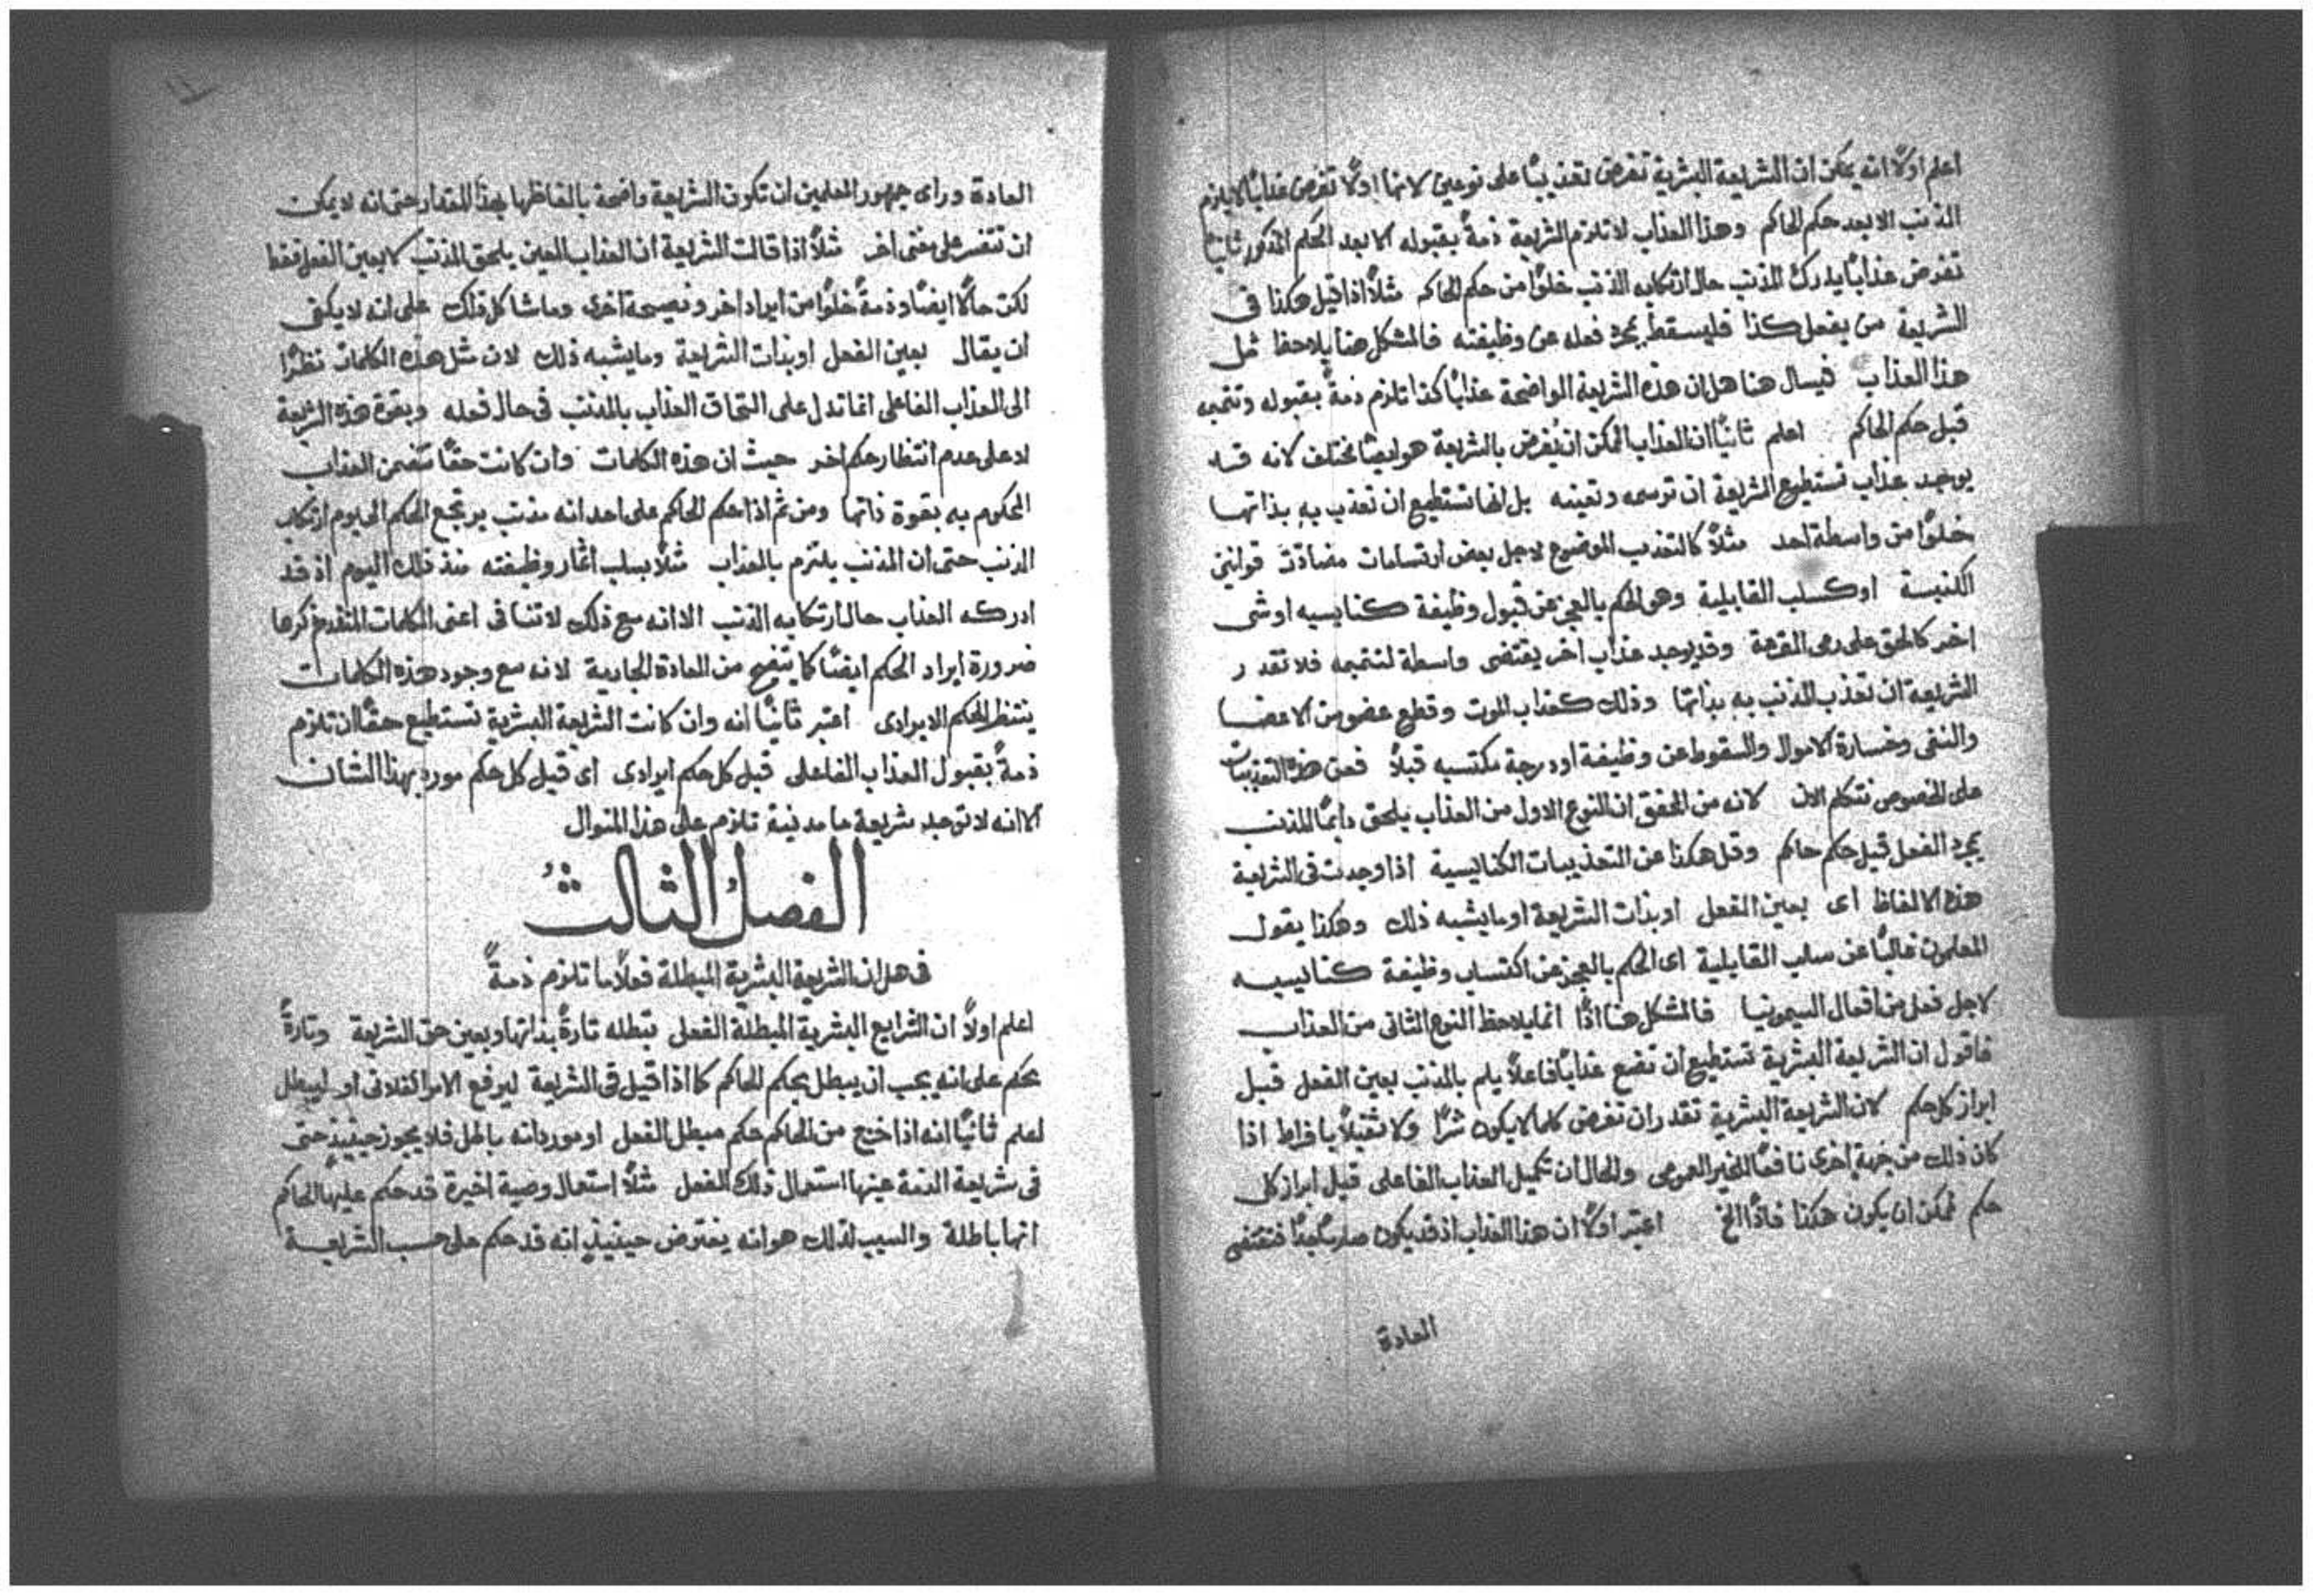 اعلم اولًا انه يمكن ان الشريعة البشرية تفرض تعذيبًا على نوعين لانها اولًا تفرض عذابًا لا يلزم
المذنب الا بعد حكم الحاكم وهذا العذاب لا تلزم الشريعة ذمةً بقبوله الا بعد الحكم المذكور ثانيًا
تفرض عذابًا يدرك المذنب حال ارتكابه الذنب خلوًا من حكم الحاكم مثلًا اذا قيل هكذا في
الشريعة من يفعل كذا فليسقط بمجرد فعله عن وظيفته فالمشكل هنا يلاحظ مثل
هذا العذاب فيسال هنا هل ان هذه الشريعة الواضحة عذابًا كذا تلزم ذمةً بقبوله وتتميمه
قبل حكم الحاكم اعلم ثانيًا ان العذاب الممكن ان يُفرض بالشريعة هو ايضًا مختلف لانه قد
يوجد عذاب تستطيع الشريعة ان ترسمه وتعينه بل انها تستطيع ان تعذب به بذاتها
خلوًا من واسطة احد مثلًا كالتعذيب الموضوع لاجل بعض ارتسامات مضادّة قوانين
الكنيسة او كسلب القابلية وهو الحكم بالعجز عن قبول وظيفة كنايسيه او شى
اخر كالحق على رمى القرعة وقد يوجد عذاب اخر يقتضى واسطة لتتميمه فلا تقدر
الشريعة ان تعذب المذنب به بذاتها وذلك كعذاب الموت وقطع عضو من الاعضا
والنفى وخسارة الاموال والسقوط عن وظيفة او درجة مكتسبه قبلًا فعن هذه التعذيبات
على الخصوص نتكلم الان لانه من المحقق ان النوع الاول من العذاب يلحق دايمًا المذنب
بمجرد الفعل قبل حكم حاكم وقل هكذا عن التعذيبات الكنايسية اذا وجدت في الشريعة
هذه الالفاظ اى بعين الفعل او بذات الشريعة او ما يشبه ذلك وهكذا يقول
المعلمون غالبًا عن سلب القابلية اى الحكم بالعجز عن اكتساب وظيفة كنايسيه
لاجل فعل من افعال السيمونيا فالمشكل هنا اذًا انما يلاحظ النوع الثاني من العذاب
فاقول ان الشريعة البشرية تستطيع ان تضع عذابًا فاعلًا يلم بالمذنب بعين الفعل قبل
ابراز كل حكم لان الشريعة البشرية تقدر ان تفرض كلما لا يكون شرًا ولا ثقيلًا بافراط اذا
كان ذلك من جهة اخرى نافعًا للخير العمومى والحال ان تكميل العذاب الفاعلى قبل ابراز كل
حكم يمكن ان يكون هكذا فاذًا الخ اعتبر اولًا ان هذا العذاب اذ قد يكون صارمًا جدًا فتقتضى
العادة
العادة وراى جمهور المعلمين ان تكون الشريعة واضحة بالفاظها بهذا المقدار حتى انه لا يمكن
ان تتفسر على معنى اخر مثلًا اذا قالت الشريعة ان العذاب المعين يلحق المذنب لا بعين الفعل فقط
لكن حالًا ايضًا وذمةً خلوًا من ايراد اخر ونصيحة اخرى وما شاكل ذلك على انه لا يكفى
ان يقال بعين الفعل او بذات الشريعة وما يشبه ذلك لان مثل هذه الكلمات نظرًا
الى العذاب الفاعلى انما تدل على التحاق العذاب بالمذنب في حال فعله وبقوة هذه الشريعة
لا على عدم انتظار حكم اخر حيث ان هذه الكلمات وان كانت حقًا تتضمن العذاب
المحكوم به بقوة ذاتها ومن ثم اذا حكم الحاكم على احد انه مذنب يرتجع الحكم الى يوم ارتكاب
الذنب حتى ان المذنب يلتزم بالعذاب مثلًا بسلب اثمار وظيفته منذ ذلك اليوم اذ قد
ادركه العذاب حال ارتكابه الذنب الا انه مع ذلك لا تنافى اعنى الكلمات المتقدم ذكرها
ضرورة ايراد الحكم ايضًا كما يتضح من العادة الجارية لانه مع وجود هذه الكلمات
ينتظر الحكم الايرادى اعتبر ثانيًا انه وان كانت الشريعة البشرية تستطيع حقًا ان تلزم
ذمةً بقبول العذاب الفاعلى قبل كل حكم ايرادى اى قبل كل حكم مورد بهذا الشان
الا انه لا توجد شريعة ما مدنية تلزم على هذا المنوال
الفصل الثالث
في هل ان الشريعة البشرية المبطلة فعلًا ما تلزم ذمةً
اعلم اولًا ان الشرايع البشرية المبطلة الفعل تبطله تارةً بذاتها وبعين حق الشريعة وتارةً
تحكم على انه يجب ان يبطل بحكم الحاكم كما اذا قيل في الشريعة ليرفع الامر الفلانى او ليبطل
اعلم ثانيًا انه اذا خرج من الحاكم حكم مبطل الفعل او مورد انه باطل فلا يجوز حينيذٍ حتى
في شريعة الذمة عينها استعمال ذلك الفعل مثلًا استعمال وصية اخيرة قد حكم عليها الحاكم
انها باطلة والسبب لذلك هو انه يفترض حينيذٍ انه قد حكم على حسب الشريعة